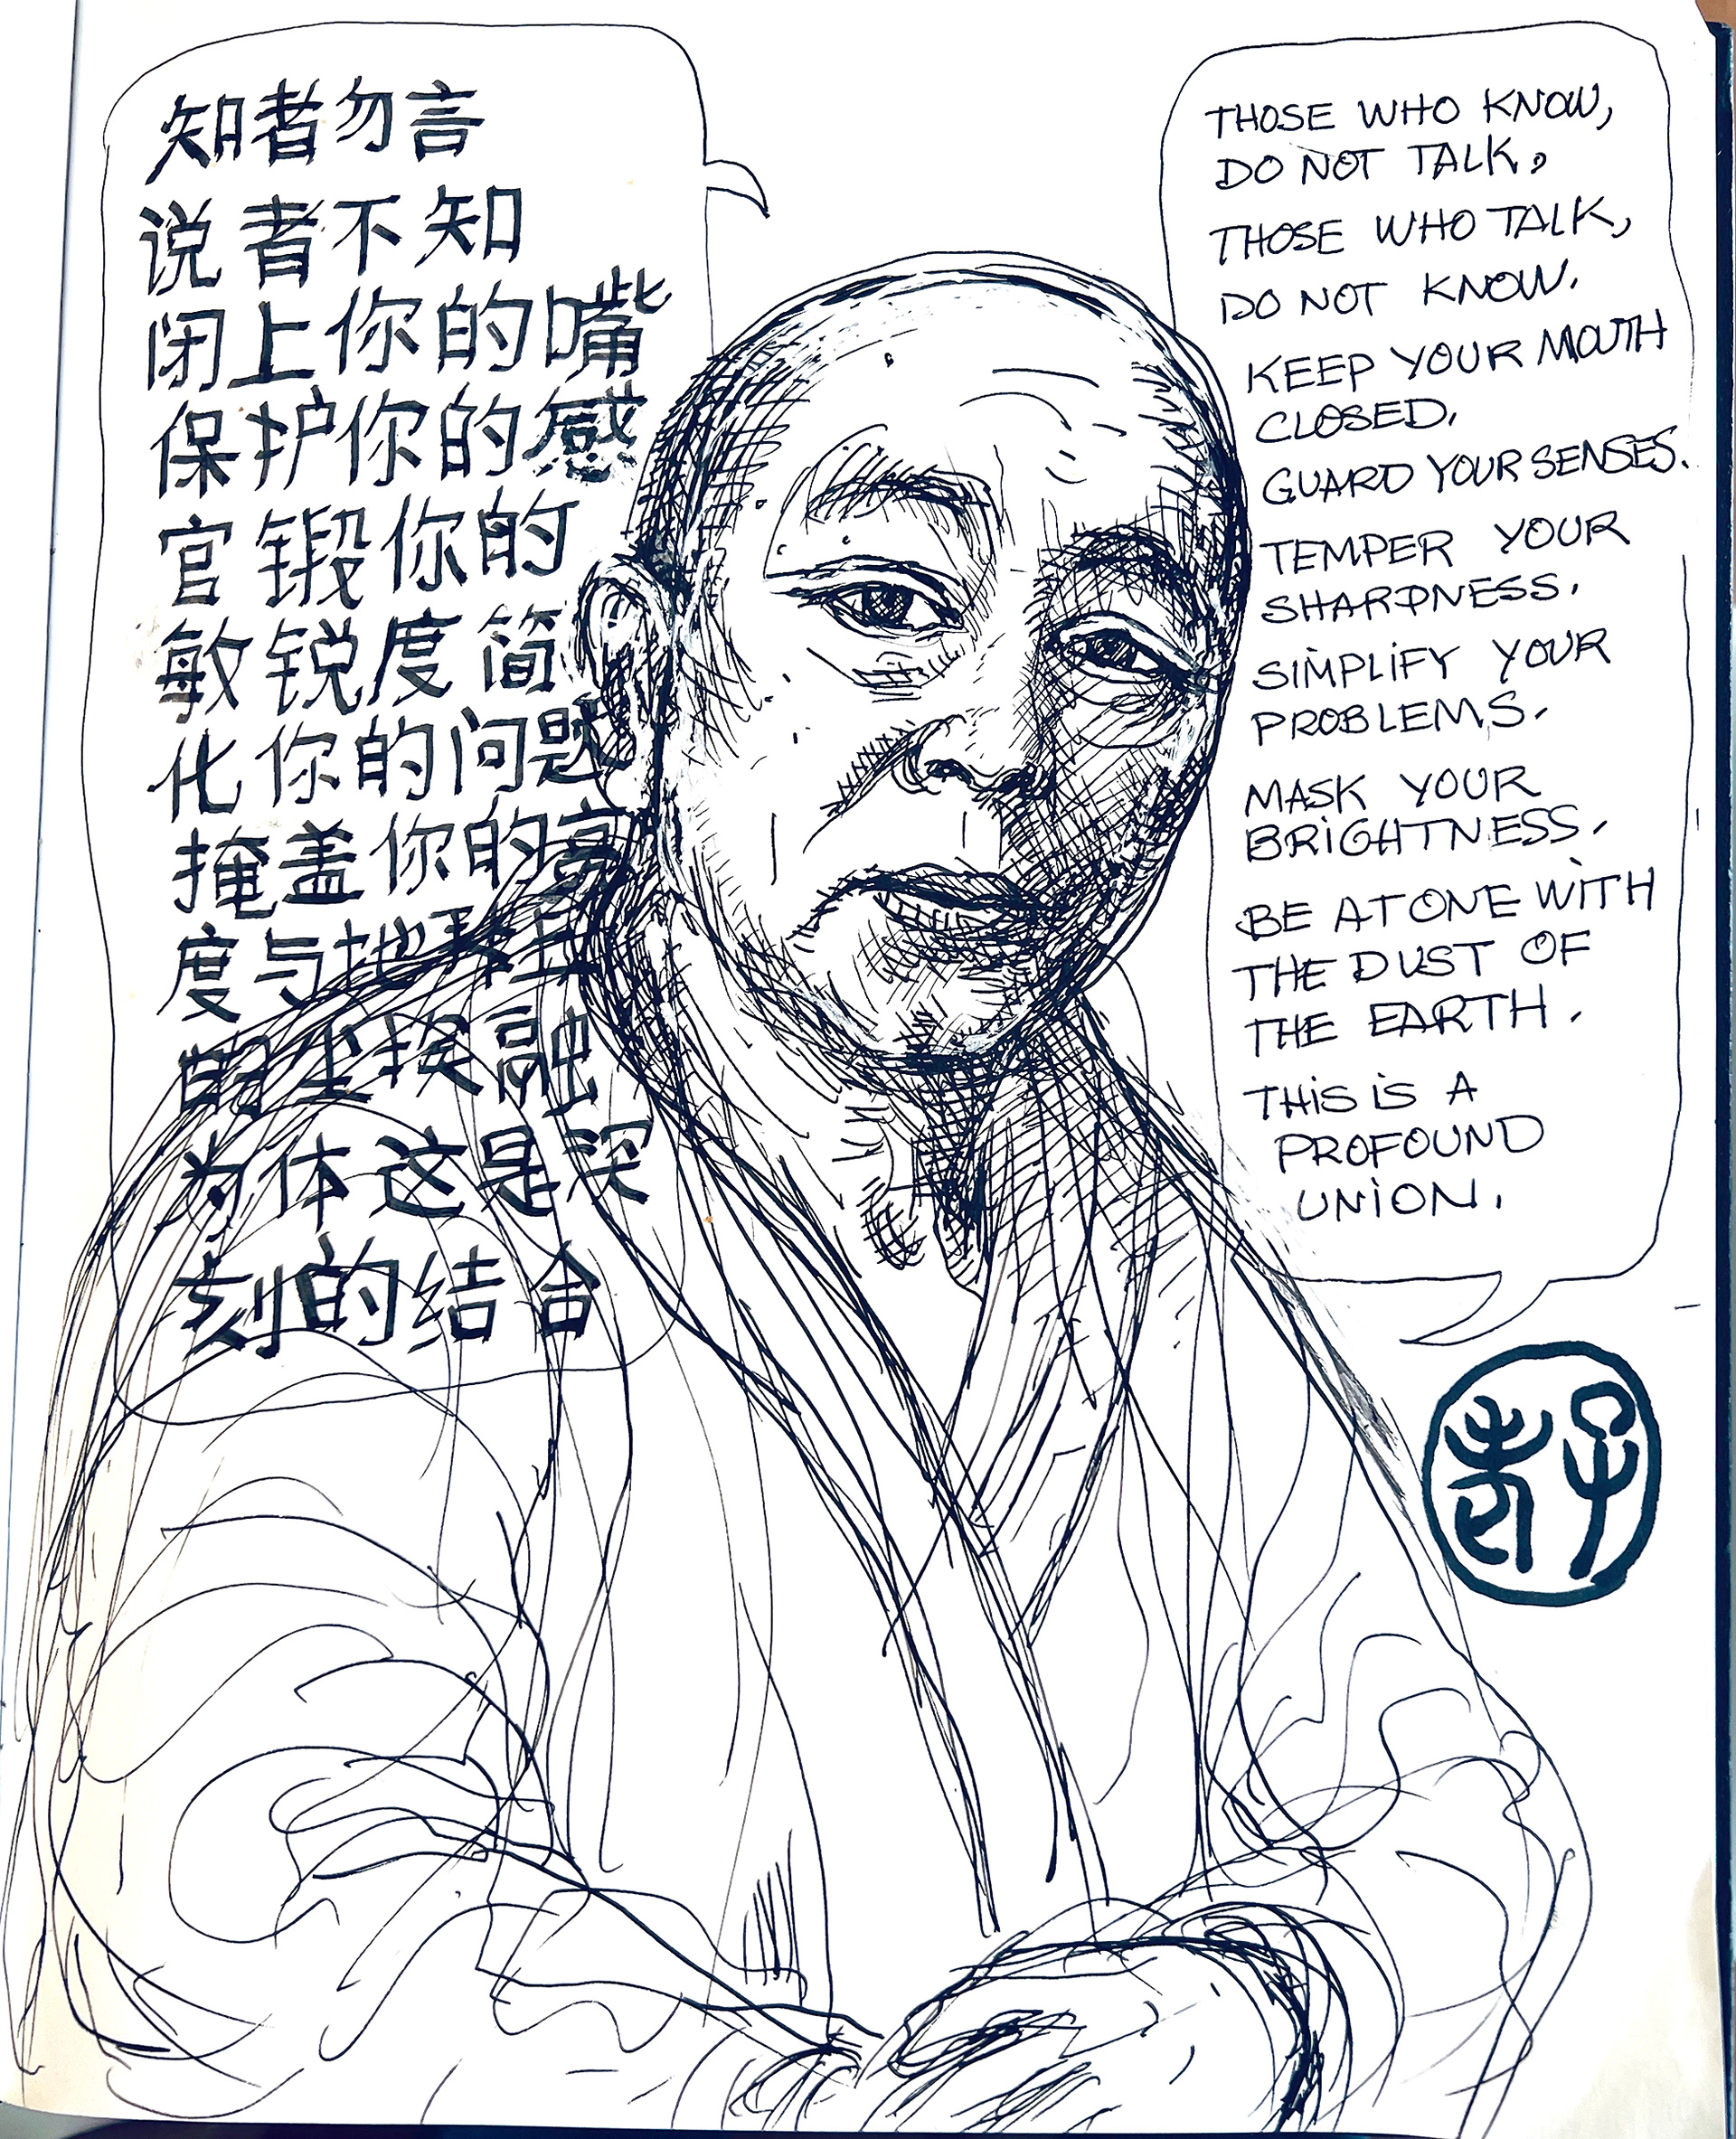 知者勿言
说者不知
闭上你的嘴
保护你的感
官锻你的
敏锐度简
化你的问题
掩盖你的亮
度与地球上
的尘埃融
为体这是深
刻的结合
THOSE WHO KNOW,
DO NOT TALK.
THOSE WHO TALK,
DO NOT KNOW.
KEEP YOUR MOUTH
CLOSED.
GUARD YOUR SENSES.
TEMPER YOUR
SHARPNESS.
SIMPLIFY YOUR
PROBLEMS.
MASK YOUR
BRIGHTNESS.
BE AT ONE WITH
THE DUST OF
THE EARTH.
THIS IS A
PROFOUND
UNION.
老子